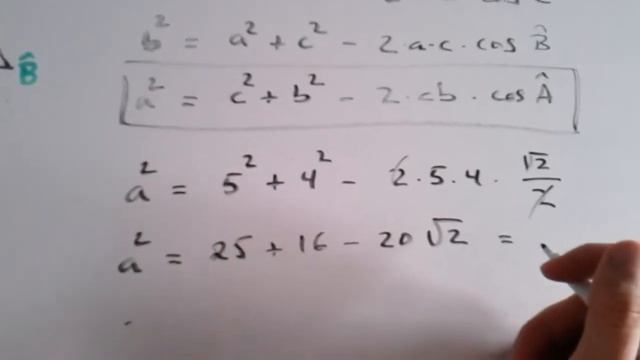 b² = a² + c² - 2·a·c·cos B̂
B̂
a² = c² + b² - 2·cb·cos Â
a² = 5² + 4² - 2·5·4·√2/2
a² = 25 + 16 - 20√2 =